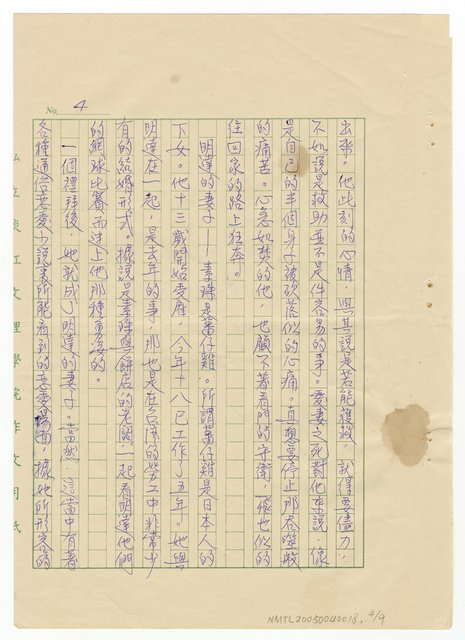 No. 4
出發。他此刻的心情,與其說是若能獲救,就得要儘力,
不如說是救助並不是件容易的事。愛妻之死對他來說,像
是自己的半個身子被砍落似的心痛。真想要停止那吞噬般
的痛苦。心急如焚的他,也顧不著看門的守衛,飛也似的
往回家的路上狂奔。
明達的妻子——素珠是蕃仔雞。所謂蕃仔雞是日本人的
下女。他十三歲開始受雇,今年十八已工作了五年。她與
明達在一起,是去年的事,那也是在台灣的勞工中非常少
有的結婚形式。據說是素珠與餅店的老闆一起看明達他們
的網球比賽而迷上他那種東西的。
一個禮拜後,她就成了明達的妻子。當然,這當中有著
各種適合戀愛小說裏所能看到的戀愛場面,據她所形容的
私立淡江文理學院作文用紙
NMTL20050040018, 4/9